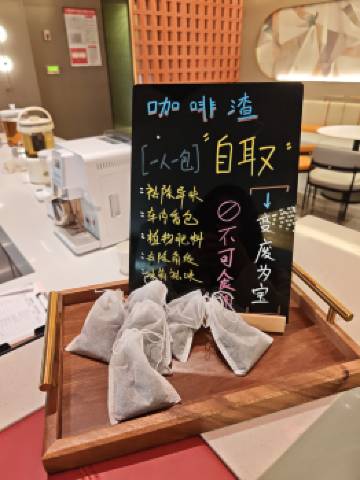 咖啡渣
[一人一包]
"自取"
:祛除异味
:车内香包
:植物肥料
⊘不可食用
↓变废为宝